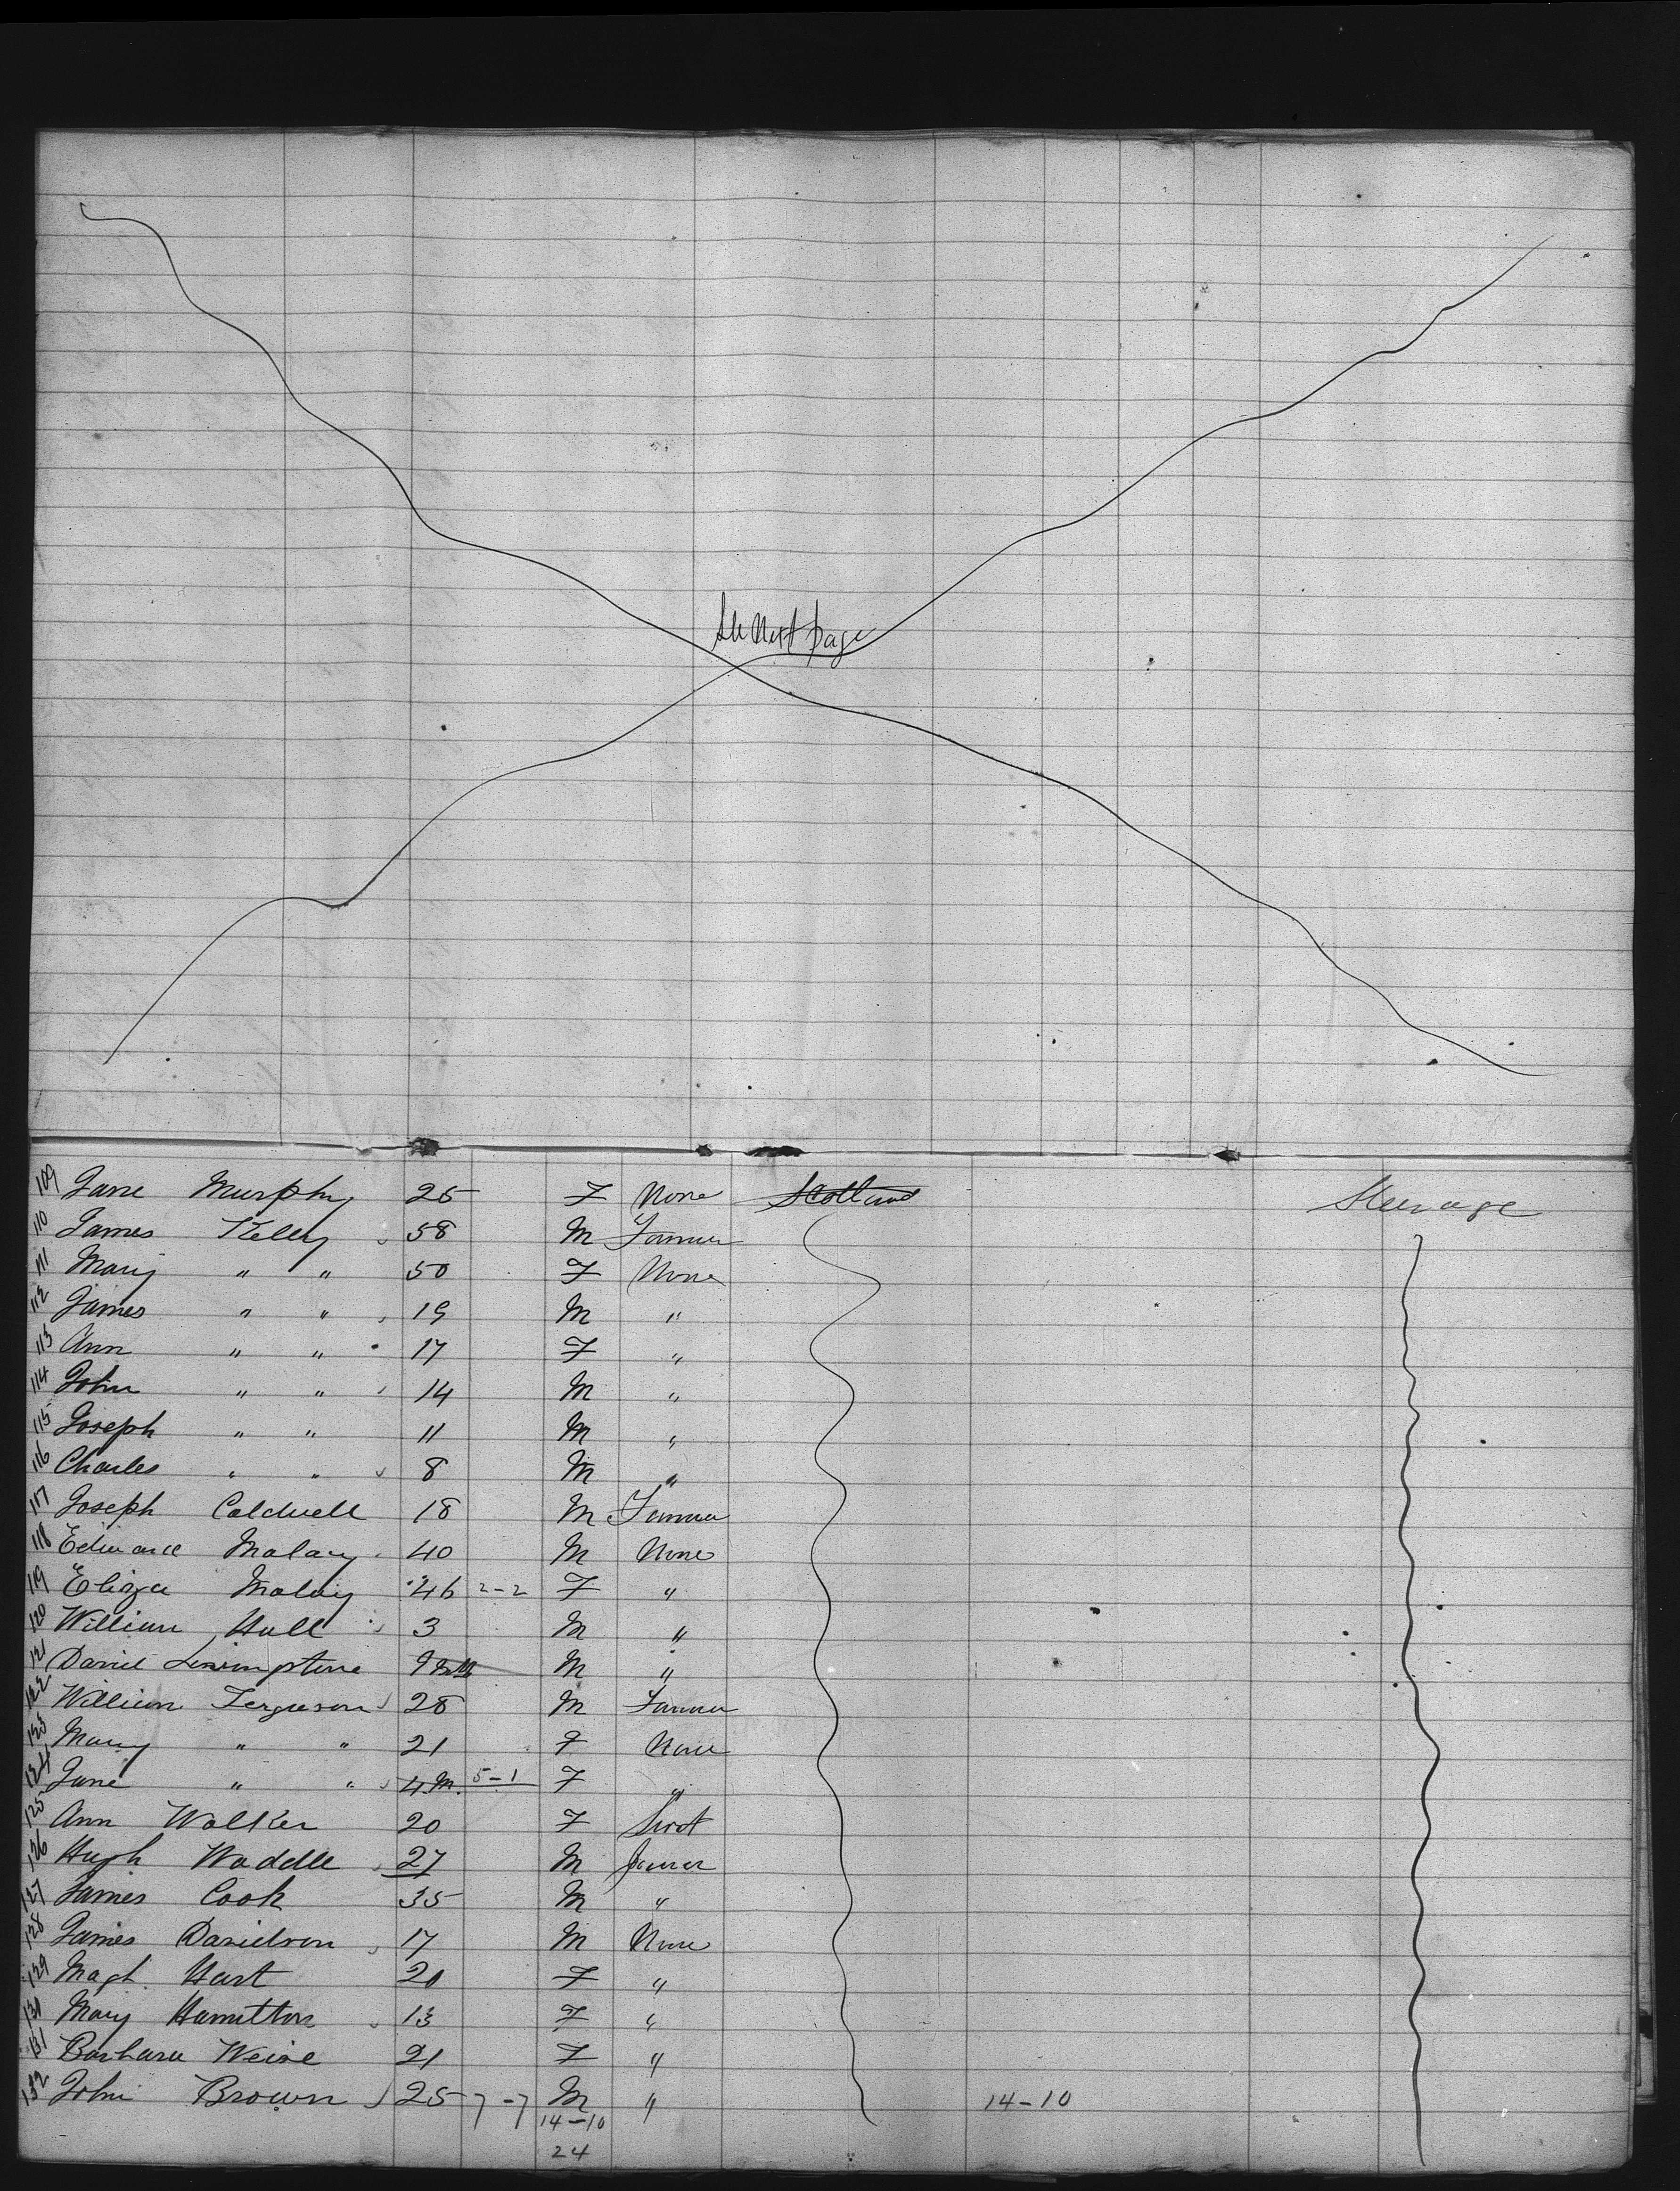 See Next page
109 Jane Murphy 25 F None Scotland Steerage
110 James Kelly 58 M Farmer
111 Mary " " 50 F None
112 James " " 19 M "
113 Ann " " 17 F "
114 John " " 14 M "
115 Joseph " " 11 M "
116 Charles " " 8 M "
117 Joseph Caldwell 18 M Farmer
118 Edward Malay 40 M None
119 Eliza Malay 46 2-2 F "
120 William Hull 3 M "
121 Daniel 9 Mth M "
122 William Ferguson 28 M Farmer
123 Mary " " 21 F None
124 Jane " " 4 M. 5-1 F "
125 Ann Walker 20 F
126 Hugh Waddle 27 M
127 James Cook 35 M "
128 James Davidson 17 M None
129 Magt. Hart 20 F "
130 Mary Hamilton 13 F "
131 Barbara Weise 21 F "
132 John Brown 25 7-7 M " 14-10
14-10
24